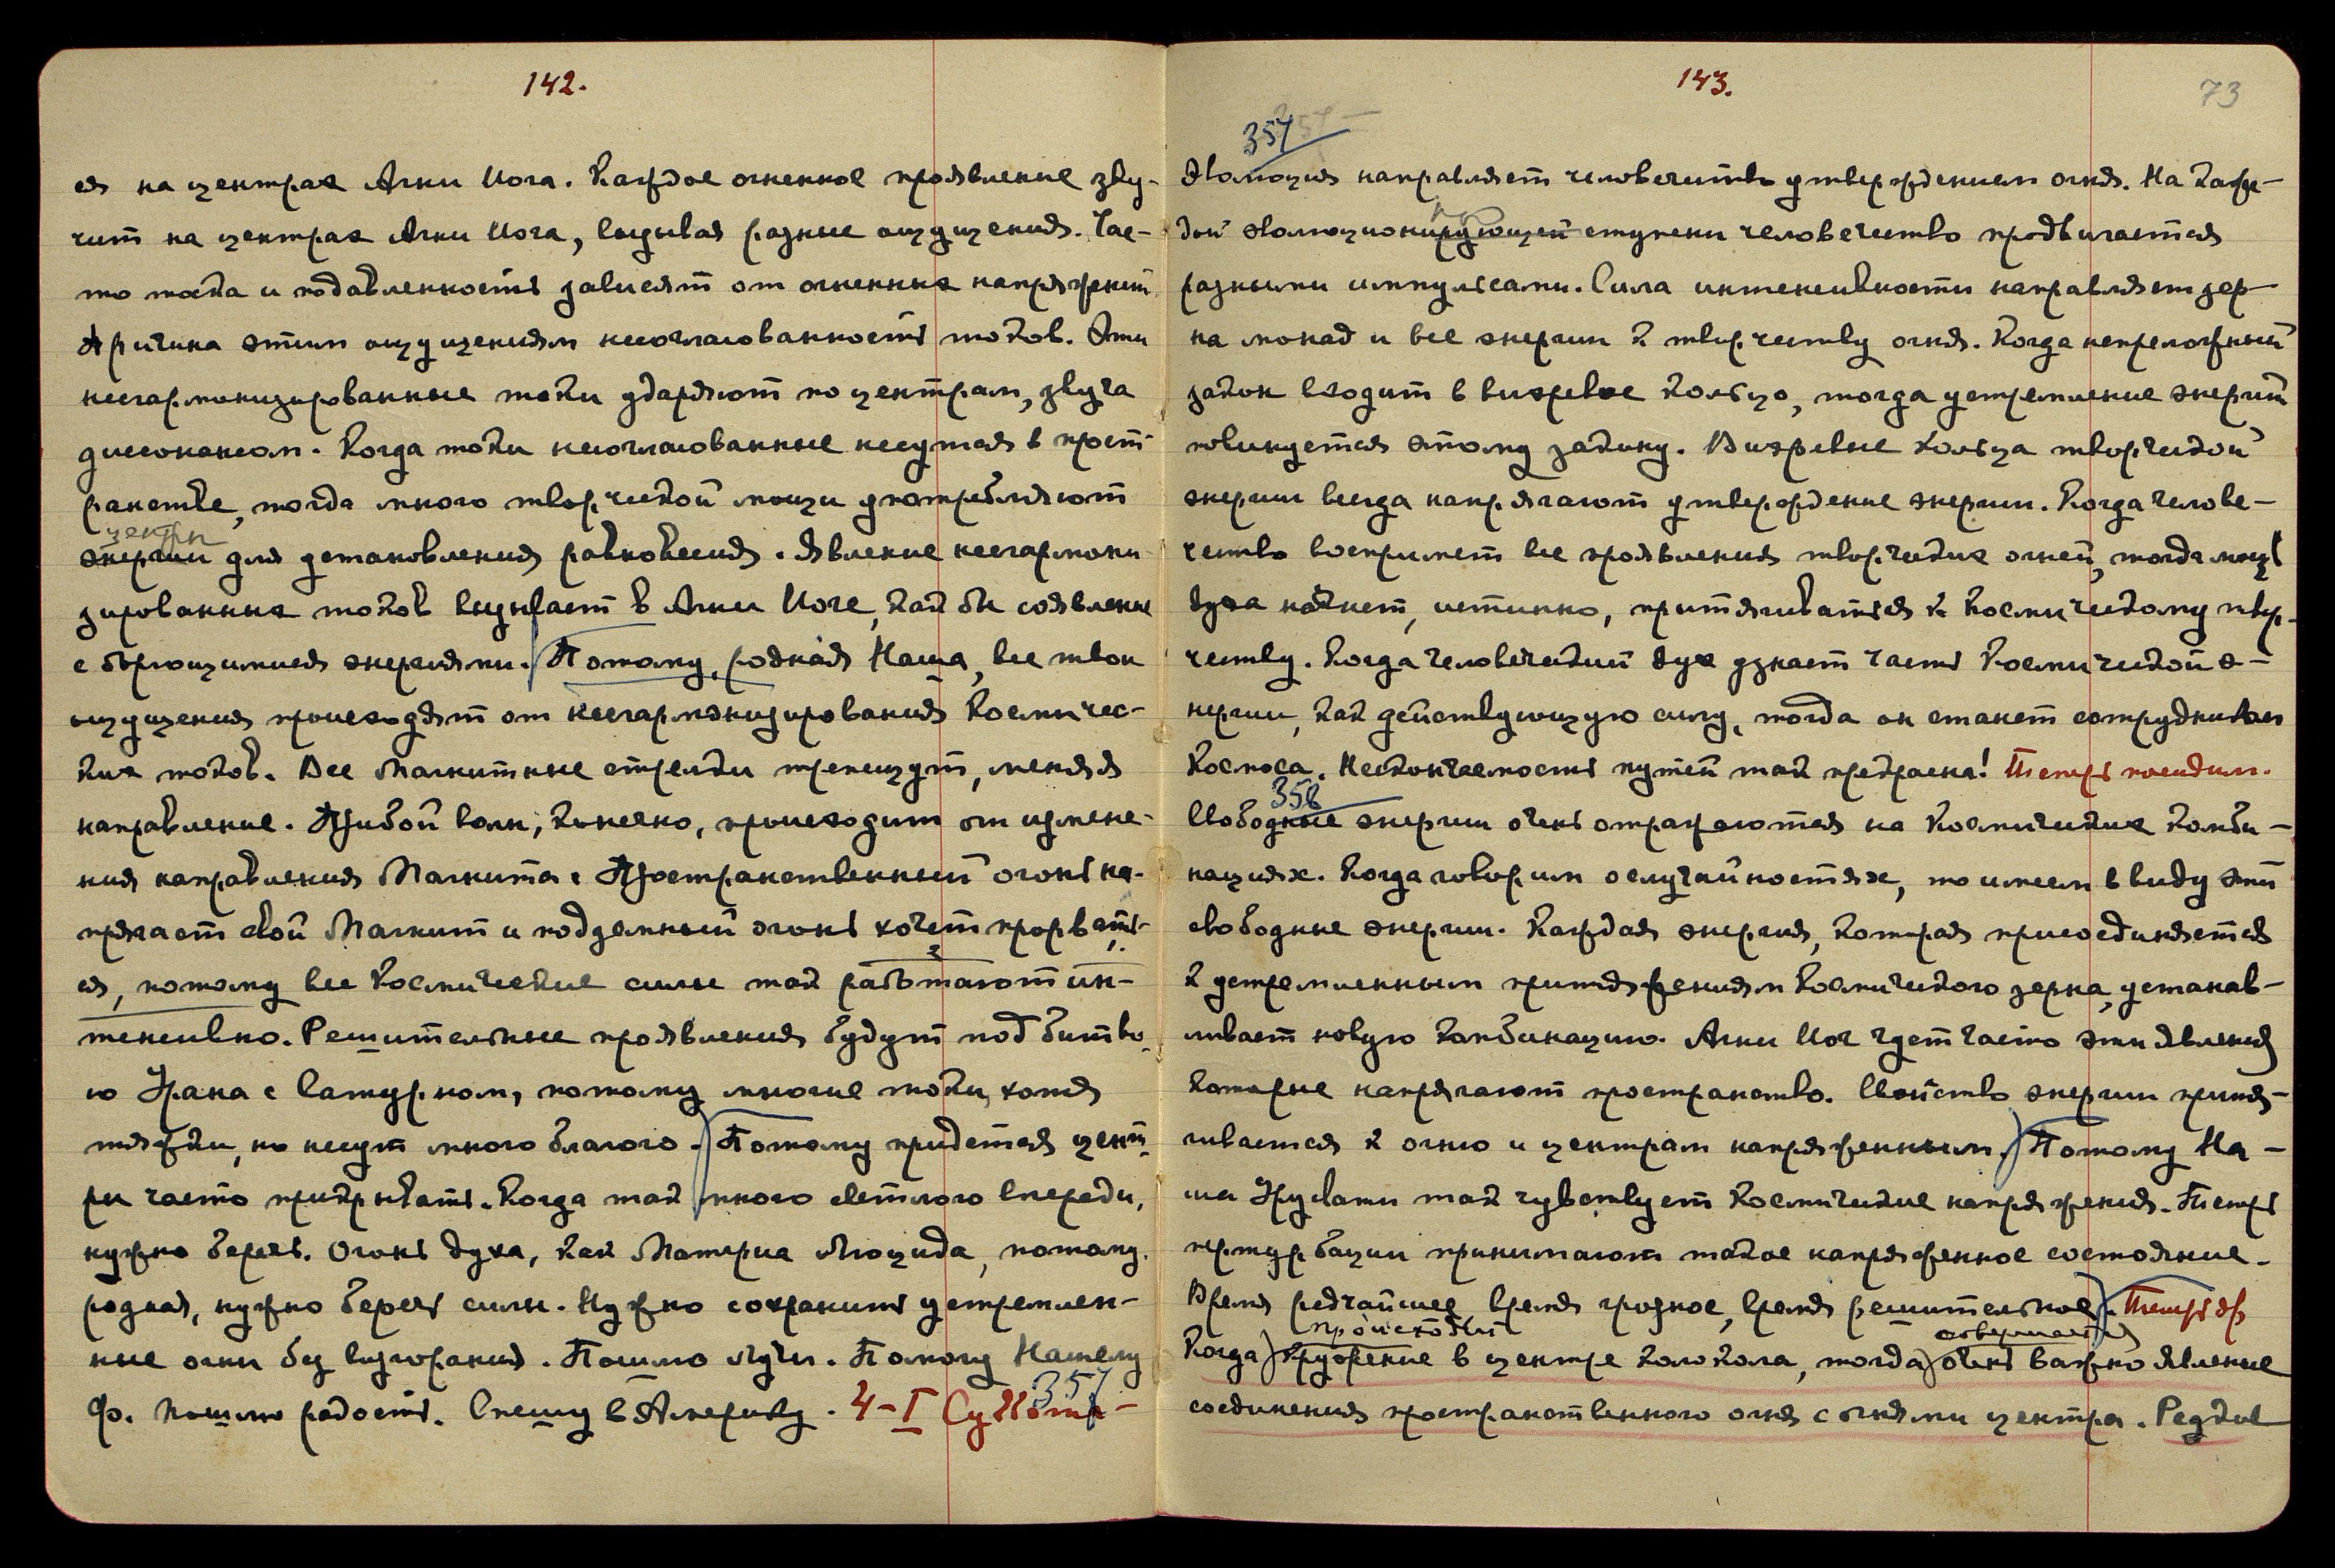 142.
ся на центрах Агни Иога. Каждое огненное проявление зву-
чит на центрах Агни Иога, вызывая разные ощущения. Час-
то тоска и подавленность зависят от огненных напряжений.
Причина этим ощущениям несогласованность токов. Эти
несгармонизированные токи ударяют по центрам, звуча
диссонансом. Когда токи несогласованные несутся в прост-
ранстве, тогда много творческой мощи употребляют
центры
энергии для установления равновесия. Явление несгармони-
зированных токов вызывает в Агни Иоге, как бы соявление
с борющимися энергиями. Потому, родная Наша, все твои
ощущения происходят от несгармонизирования Космичес-
ких токов. Все Магнитные стрелки трепещут, меняя
направление. Прибой волн, конечно, происходит от измене-
ния направления Магнита. Пространственный огонь на-
прягает свой Магнит и подземный огонь хочет прорвать-
ся, потому все Космические силы так работают ин-
тенсивно. Решительные проявления будут под битво-
ю Урана с Сатурном, потому многие токи, хотя
тяжки, но несут много благого. Потому придется цент-
ры часто прикрывать. Когда так много светлого впереди,
нужно беречь. Огонь духа, как Материа Люцида, потому,
родная, нужно беречь силы. Нужно сохранить устремлен-
ные огни без возгорания. Пошлю лучи. Помогу Нашему
Ф. Пошлю радость. Спешу в Америку. 4-I Суббота-
357
143.
73
357
Эволюция направляет человечество утверждением огня. На каж-
дой эволюционирующей ступени человечество продвигается
разными импульсами. Сила интенсивности направляет зер-
на монад и все энергии к творчеству огня. Когда непреложный
закон входит в вихревое кольцо, тогда устремление энергий
повинуется этому закону. Вихревые кольца творческой
энергии всегда напрягают утверждение энергии. Когда челове-
чество воспримет все проявления творческих огней, тогда мощь
духа начнет, истинно, притягиваться к Космическому твор-
честву. Когда человеческий дух узнает часть Космической э-
нергии, как действующую силу, тогда он станет сотрудником
Космоса. Нескончаемость путей так прекрасна! Теперь посидим.
358
Свободные энергии очень отражаются на Космических комби-
нациях. Когда говорим о случайностях, то имеем в виду эти
свободные энергии. Каждая энергия, которая присоединяется
к устремленным притяжениям Космического зерна, устанав-
ливает новую комбинацию. Агни Иог чует часто эти явления,
которые напрягают пространство. Свойство энергии притя-
гивается к огню и центрам напряженным. Потому На-
ша Урусвати так чувствует Космические напряжения. Теперь
пертурбации принимают такое напряженное состояние.
Время редчайшее, время грозное, время решительное. Теперь др
происходит совершается
Когда кружение в центре Колокола, тогда очень важно явление
соединения пространственного огня с огнями центра. Редкое